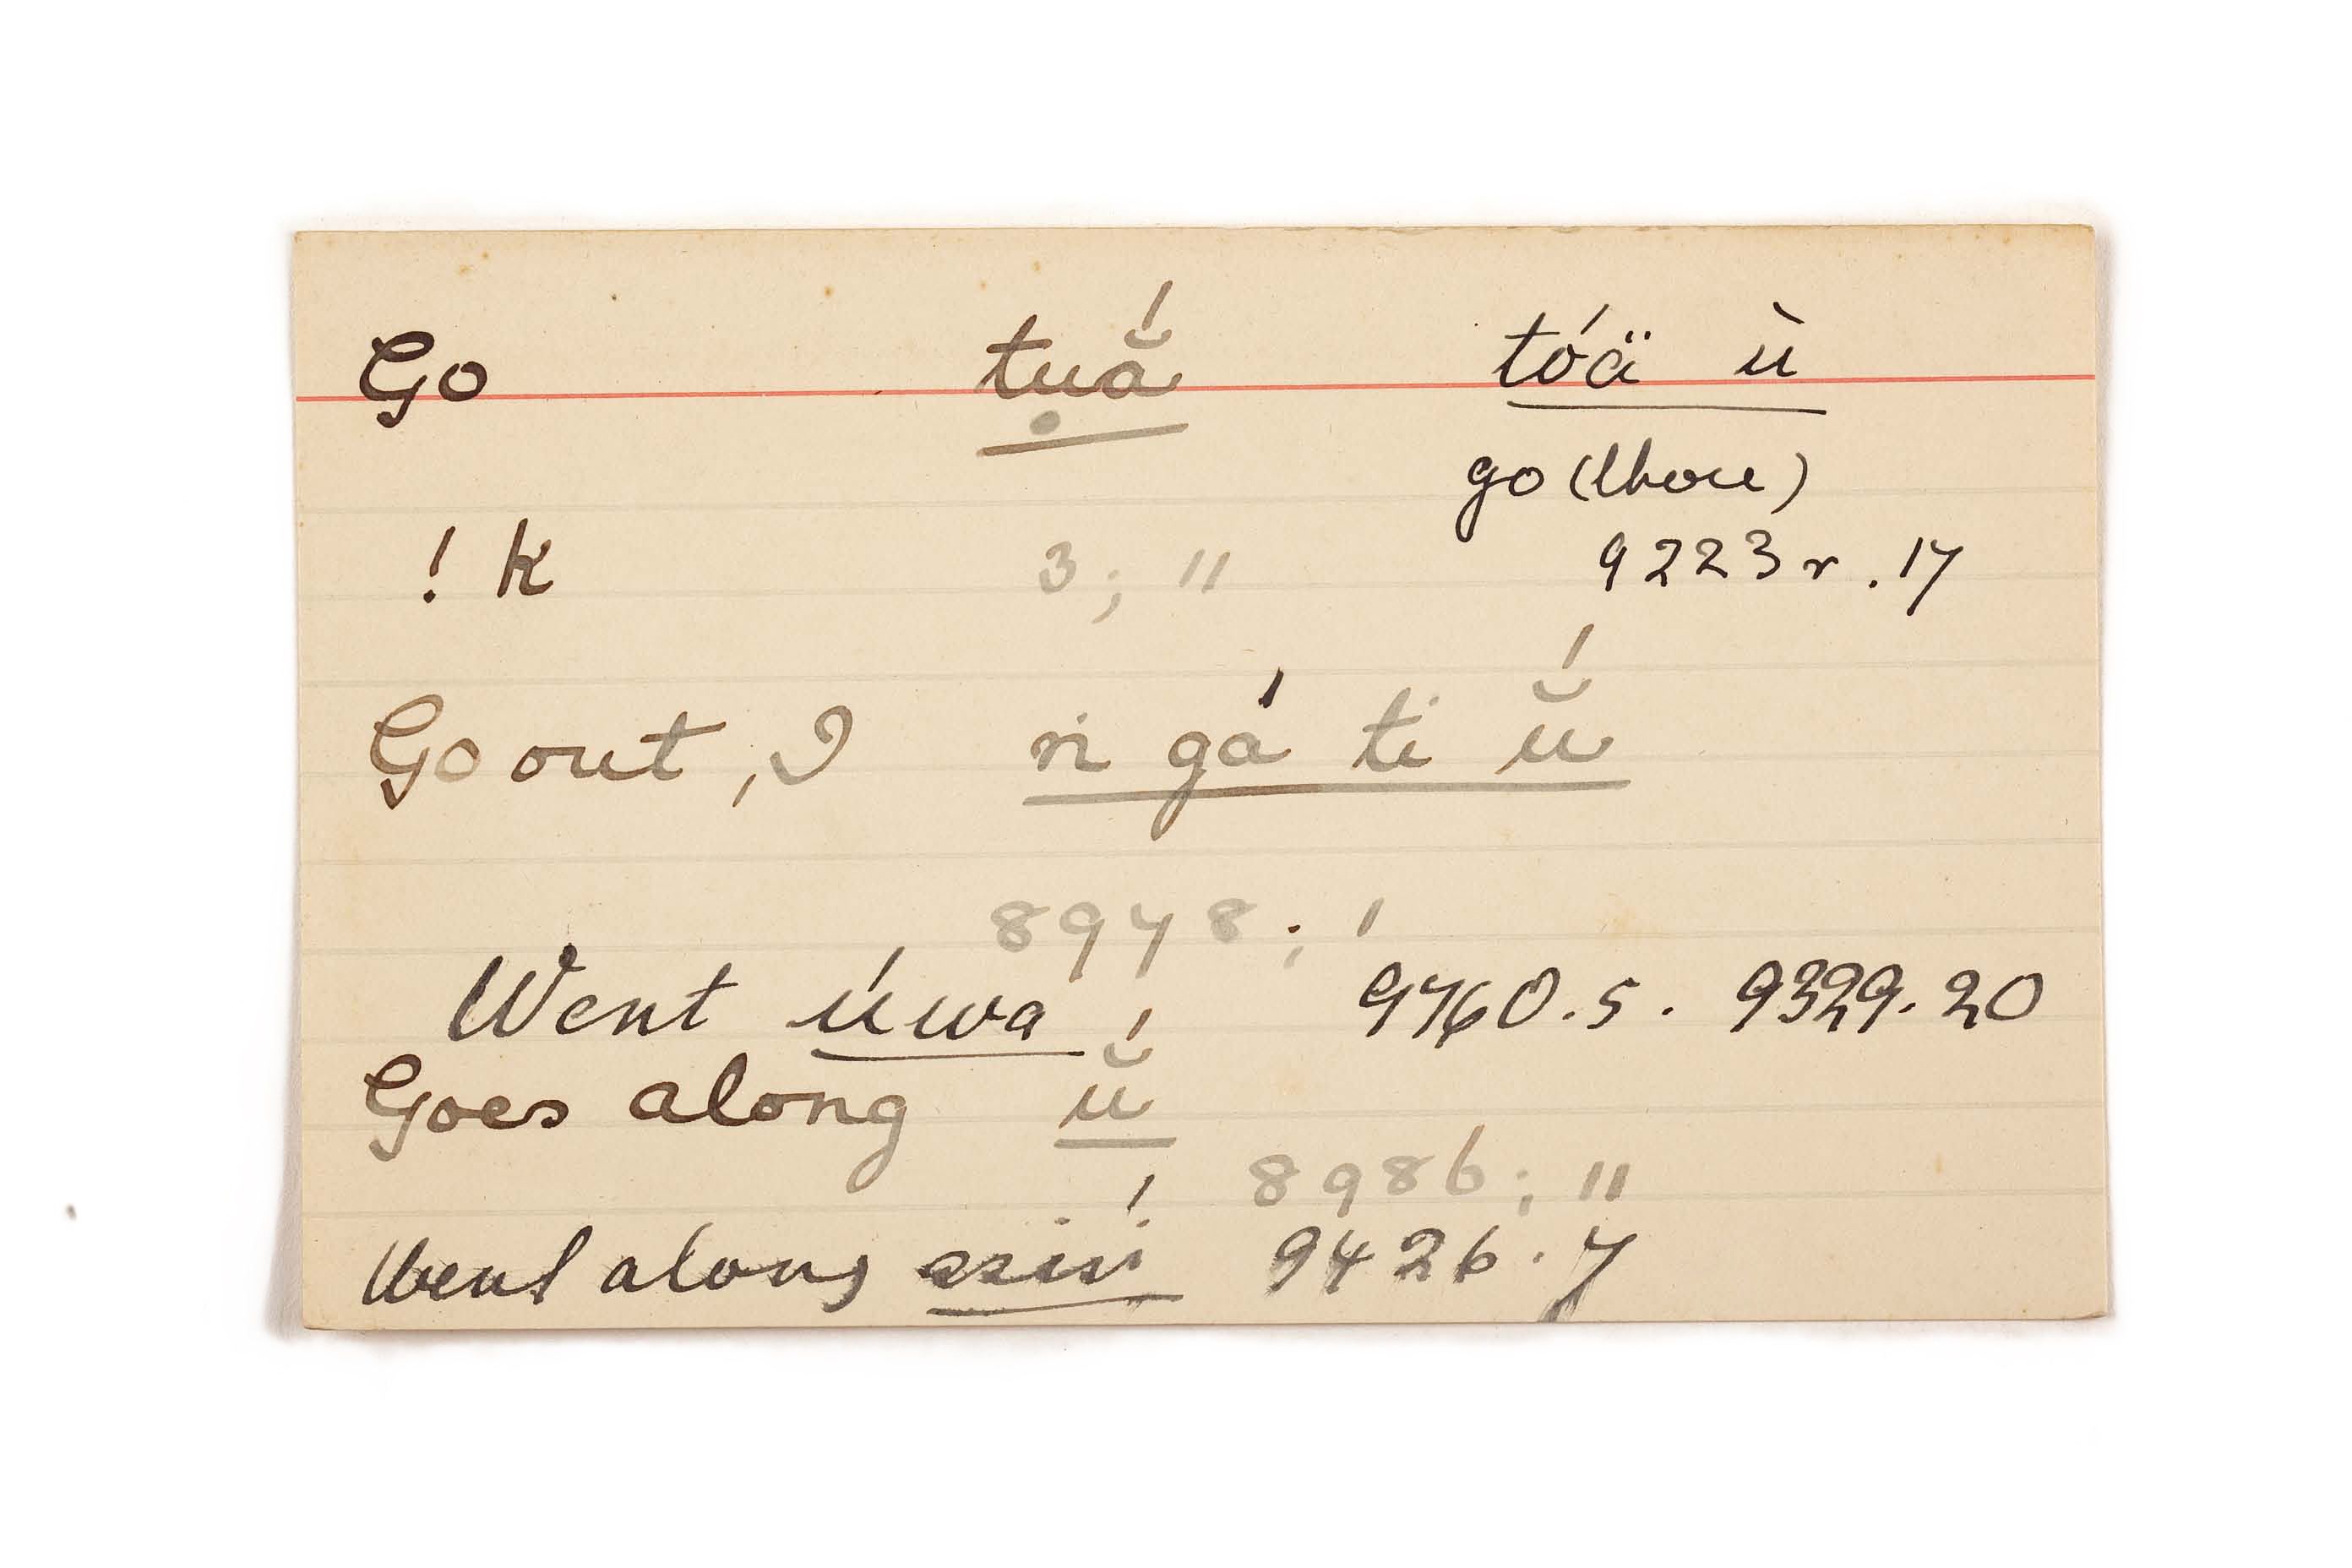 Go tụắ tóä ù
go (thou)
! k 3; " 9223 r . 17
Go out, I ri gá ti ŭ́
8978; '
Went úwa 9760.5. 9329.20
Goes along ŭ́
8986; "
Went along 9426.7